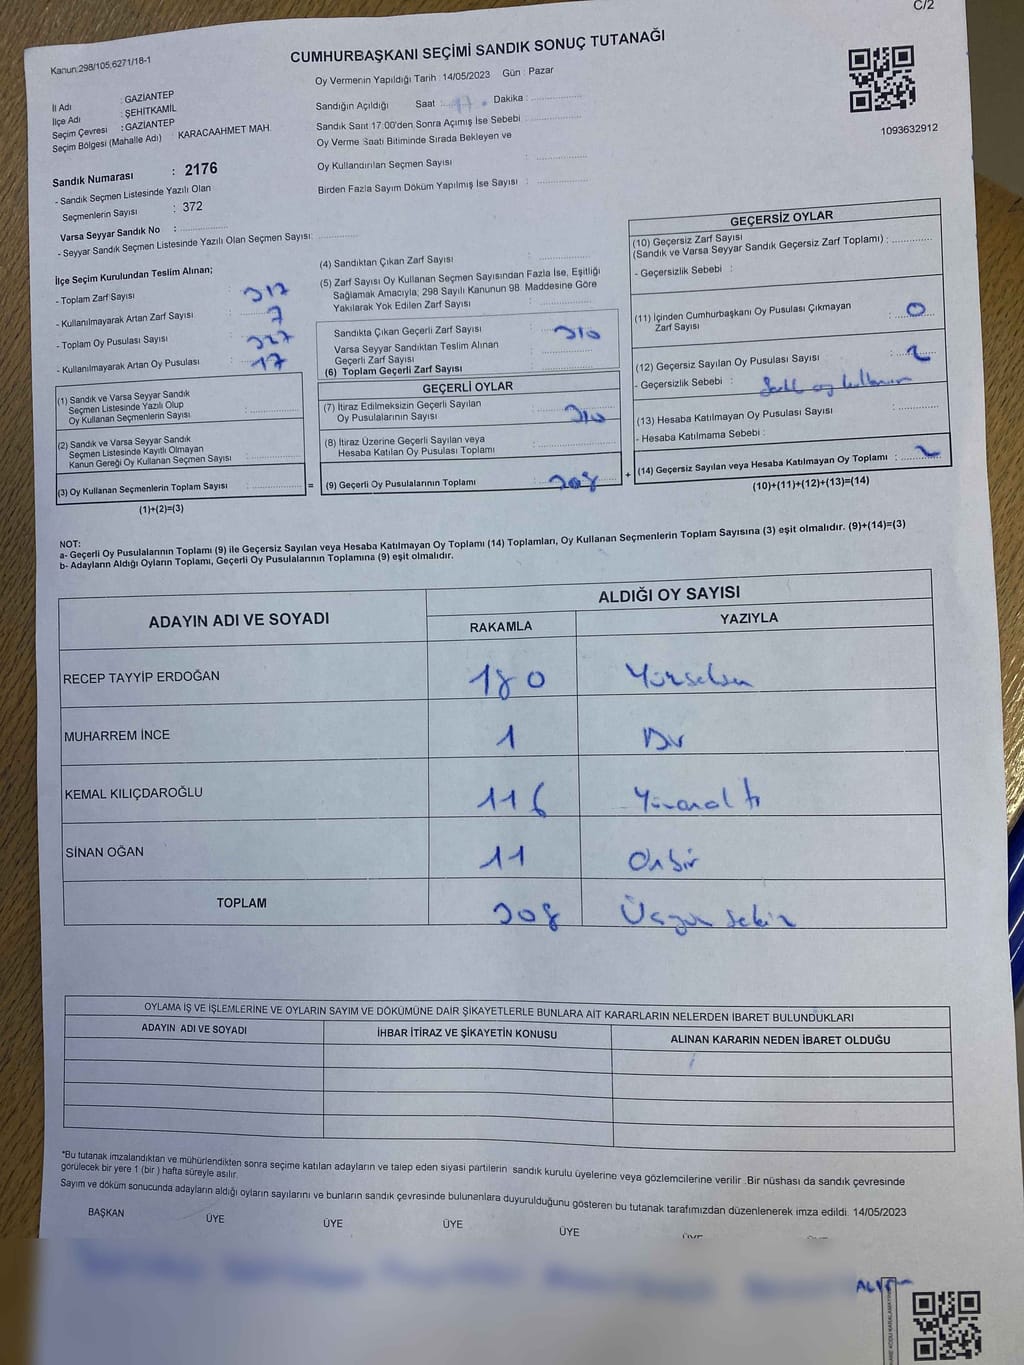 C/2
Kanun:298/105,6271/18-1
CUMHURBAŞKANI SEÇİMİ SANDIK SONUÇ TUTANAĞI
İl Adı : GAZİANTEP
İlçe Adı : ŞEHİTKAMİL
Seçim Çevresi : GAZİANTEP
Seçim Bölgesi (Mahalle Adı) KARACAAHMET MAH.
Sandık Numarası : 2176
- Sandık Seçmen Listesinde Yazılı Olan
Seçmenlerin Sayısı : 372
Varsa Seyyar Sandık No :
- Seyyar Sandık Seçmen Listesinde Yazılı Olan Seçmen Sayısı:
Oy Vermenin Yapıldığı Tarih : 14/05/2023 Gün : Pazar
Sandığın Açıldığı Saat : 17 Dakika :
Sandık Saat 17.00'den Sonra Açımış İse Sebebi :
Oy Verme Saati Bitiminde Sırada Bekleyen ve
Oy Kullandırılan Seçmen Sayısı :
Birden Fazla Sayım Döküm Yapılmış İse Sayısı :
1093632912
İlçe Seçim Kurulundan Teslim Alınan;
- Toplam Zarf Sayısı : 317
- Kullanılmayarak Artan Zarf Sayısı : 7
- Toplam Oy Pusulası Sayısı : 327
- Kullanılmayarak Artan Oy Pusulası : 17
(1) Sandık ve Varsa Seyyar Sandık
Seçmen Listesinde Yazılı Olup
Oy Kullanan Seçmenlerin Sayısı :
(2) Sandık ve Varsa Seyyar Sandık
Seçmen Listesinde Kayıtlı Olmayan
Kanun Gereği Oy Kullanan Seçmen Sayısı :
(3) Oy Kullanan Seçmenlerin Toplam Sayısı :
(1)+(2)=(3)
=
(4) Sandıktan Çıkan Zarf Sayısı :
(5) Zarf Sayısı Oy Kullanan Seçmen Sayısından Fazla İse, Eşitliği
Sağlamak Amacıyla; 298 Sayılı Kanunun 98. Maddesine Göre
Yakılarak Yok Edilen Zarf Sayısı :
Sandıkta Çıkan Geçerli Zarf Sayısı : 310
Varsa Seyyar Sandıktan Teslim Alınan
Geçerli Zarf Sayısı :
(6) Toplam Geçerli Zarf Sayısı :
GEÇERLİ OYLAR
(7) İtiraz Edilmeksizin Geçerli Sayılan
Oy Pusulalarının Sayısı : 310
(8) İtiraz Üzerine Geçerli Sayılan veya
Hesaba Katılan Oy Pusulası Toplamı :
(9) Geçerli Oy Pusulalarının Toplamı : 308
+
GEÇERSİZ OYLAR
(10) Geçersiz Zarf Sayısı
(Sandık ve Varsa Seyyar Sandık Geçersiz Zarf Toplamı) :
- Geçersizlik Sebebi :
(11) İçinden Cumhurbaşkanı Oy Pusulası Çıkmayan
Zarf Sayısı : 0
(12) Geçersiz Sayılan Oy Pusulası Sayısı : 2
- Geçersizlik Sebebi : oy
(13) Hesaba Katılmayan Oy Pusulası Sayısı :
- Hesaba Katılmama Sebebi :
(14) Geçersiz Sayılan veya Hesaba Katılmayan Oy Toplamı : 2
(10)+(11)+(12)+(13)=(14)
NOT:
a- Geçerli Oy Pusulalarının Toplamı (9) ile Geçersiz Sayılan veya Hesaba Katılmayan Oy Toplamı (14) Toplamları, Oy Kullanan Seçmenlerin Toplam Sayısına (3) eşit olmalıdır. (9)+(14)=(3)
b- Adayların Aldığı Oyların Toplamı, Geçerli Oy Pusulalarının Toplamına (9) eşit olmalıdır.
ADAYIN ADI VE SOYADI
ALDIĞI OY SAYISI
RAKAMLA YAZIYLA
RECEP TAYYİP ERDOĞAN 180 Yüzseksen
MUHARREM İNCE 1 Bir
KEMAL KILIÇDAROĞLU 116 Yüzonaltı
SİNAN OĞAN 11 Onbir
TOPLAM 308 Üçyüz sekiz
OYLAMA İŞ VE İŞLEMLERİNE VE OYLARIN SAYIM VE DÖKÜMÜNE DAİR ŞİKAYETLERLE BUNLARA AİT KARARLARIN NELERDEN İBARET BULUNDUKLARI
ADAYIN ADI VE SOYADI İHBAR İTİRAZ VE ŞİKAYETİN KONUSU ALINAN KARARIN NEDEN İBARET OLDUĞU
*Bu tutanak imzalandıktan ve mühürlendikten sonra seçime katılan adayların ve talep eden siyasi partilerin sandık kurulu üyelerine veya gözlemcilerine verilir .Bir nüshası da sandık çevresinde
görülecek bir yere 1 (bir ) hafta süreyle asılır.
Sayım ve döküm sonucunda adayların aldığı oyların sayılarını ve bunların sandık çevresinde bulunanlara duyurulduğunu gösteren bu tutanak tarafımızdan düzenlenerek imza edildi. 14/05/2023
BAŞKAN ÜYE ÜYE ÜYE ÜYE